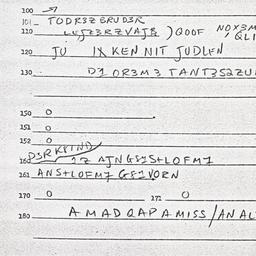 100
101 TODR3Z BRUD3R
110 LUJZ3RZVAJ8 ) QOOF NOX3M
, QLI
120 JU IX KEN NIT JUDLEN
130 D1 OR3M3 TANT3SZZU
150 O
151 O
152 O
D3RKFIND
160 1Z AJNGS1S+LOFM1
161 ANS+LOFM1 GS1VORN
170 O 171 O
180 AMAD QAP A MISS/ANAL